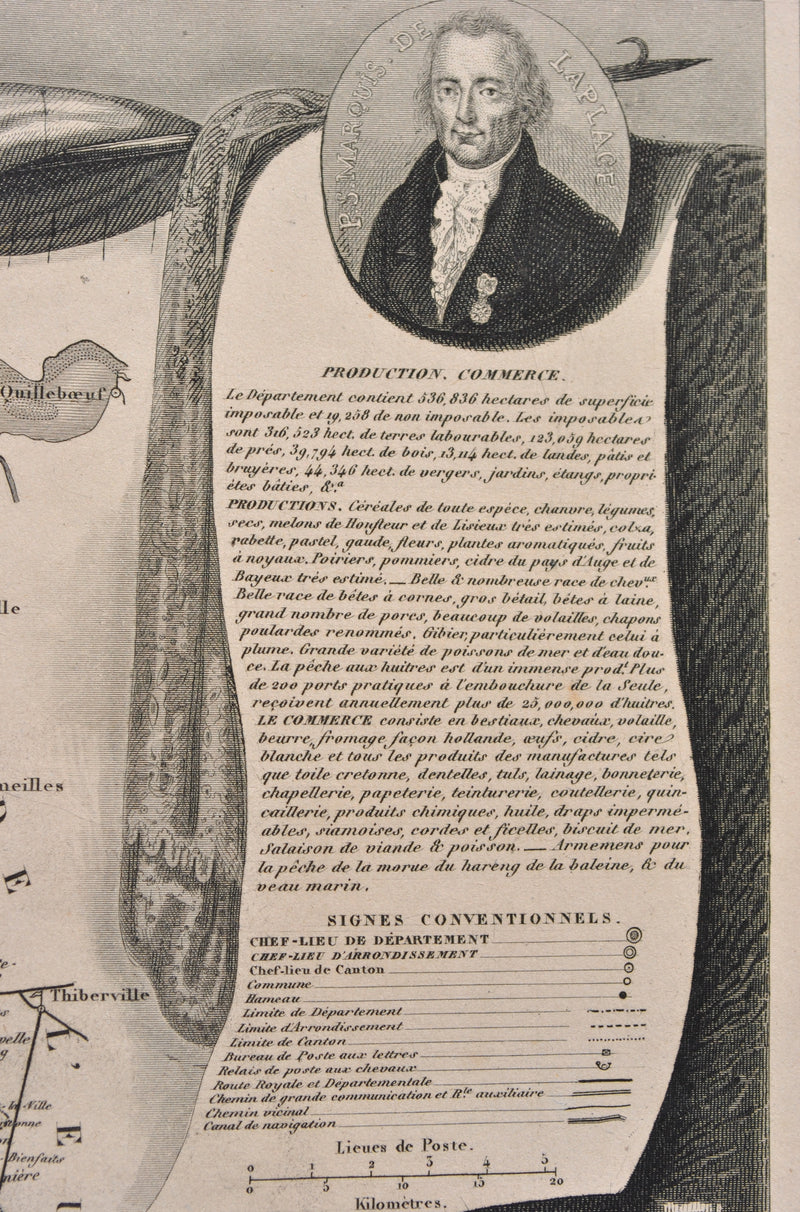 P.S. MARQUIS. DE LAPLACE
PRODUCTION. COMMERCE.
Le Département contient 536,836 hectares de superficie
imposable et 19,258 de non imposable. Les imposables
sont 316,523 hect. de terres labourables, 123,059 hectares
de prés, 39,794 hect. de bois, 13,114 hect. de landes, pâtis et
bruyères, 44,346 hect. de vergers, jardins, étangs, propri-
étes bâties, &.a
PRODUCTIONS. Céréales de toute espéce, chanvre, légumes,
secs, melons de Honfleur et de Lisieux trés estimés, colza,
rabette, pastel, gaude, fleurs, plantes aromatiqués, fruits
à noyaux. Poiriers, pommiers, cidre du pays d'Auge et de
Bayeux trés estimé. — Belle & nombreuse race de chev.ux
Belle race de bêtes à cornes, gros bétail, bêtes à laine,
grand nombre de porcs, beaucoup de volailles, chapons
poulardes renommés. Gibier, particulièrement celui à
plume. Grande variété de poissons de mer et d'eau dou-
ce. La pêche aux huitres est d'un immense prod.t Plus
de 200 ports pratiqués à l'embouchure de la Seule,
reçoivent annuellement plus de 25,000,000 d'huitres.
LE COMMERCE consiste en bestiaux, chevaux, volaille,
beurre, fromage façon hollande, œufs, cidre, cire
blanche et tous les produits des manufactures tels
que toile cretonne, dentelles, tuls, lainage, bonneterie,
chapellerie, papeterie, teinturerie, coutellerie, quin-
caillerie, produits chimiques, huile, draps impermé-
ables, siamoises, cordes et ficelles, biscuit de mer,
Salaison de viande & poisson. — Armemens pour
la pêche de la morue du hareng de la baleine, & du
veau marin.
SIGNES CONVENTIONNELS.
CHEF-LIEU DE DÉPARTEMENT
CHEF-LIEU D'ARRONDISSEMENT
Chef-lieu de Canton
Commune
Hameau
Limite de Département
Limite d'Arrondissement
Limite de Canton
Bureau de Poste aux lettres
Relais de poste aux chevaux
Route Royale et Départementale
Chemin de grande communication et R.te auxiliaire
Chemin vicinal
Canal de navigation
Lieues de Poste.
0 1 2 3 4 5
0 5 10 15 20
Kilomètres.
Quillebœuf
lle
neilles
E
Thiberville
L'
pelle
Ville
E
Bienfaits
nière